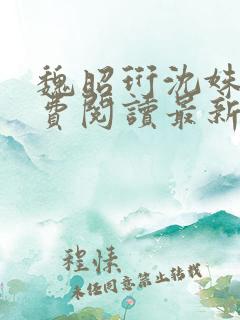 魏昭珩沈姝
費閱讀最新
程悚
未经同意禁止转载